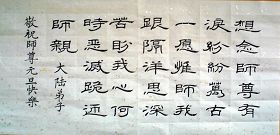 想念師尊有
淚紛紛萬古
一愿惟師我
跟隔洋思深
苦盼我心何
時惡滅跪迎
師親
大陸弟子
敬祝師尊元旦快樂